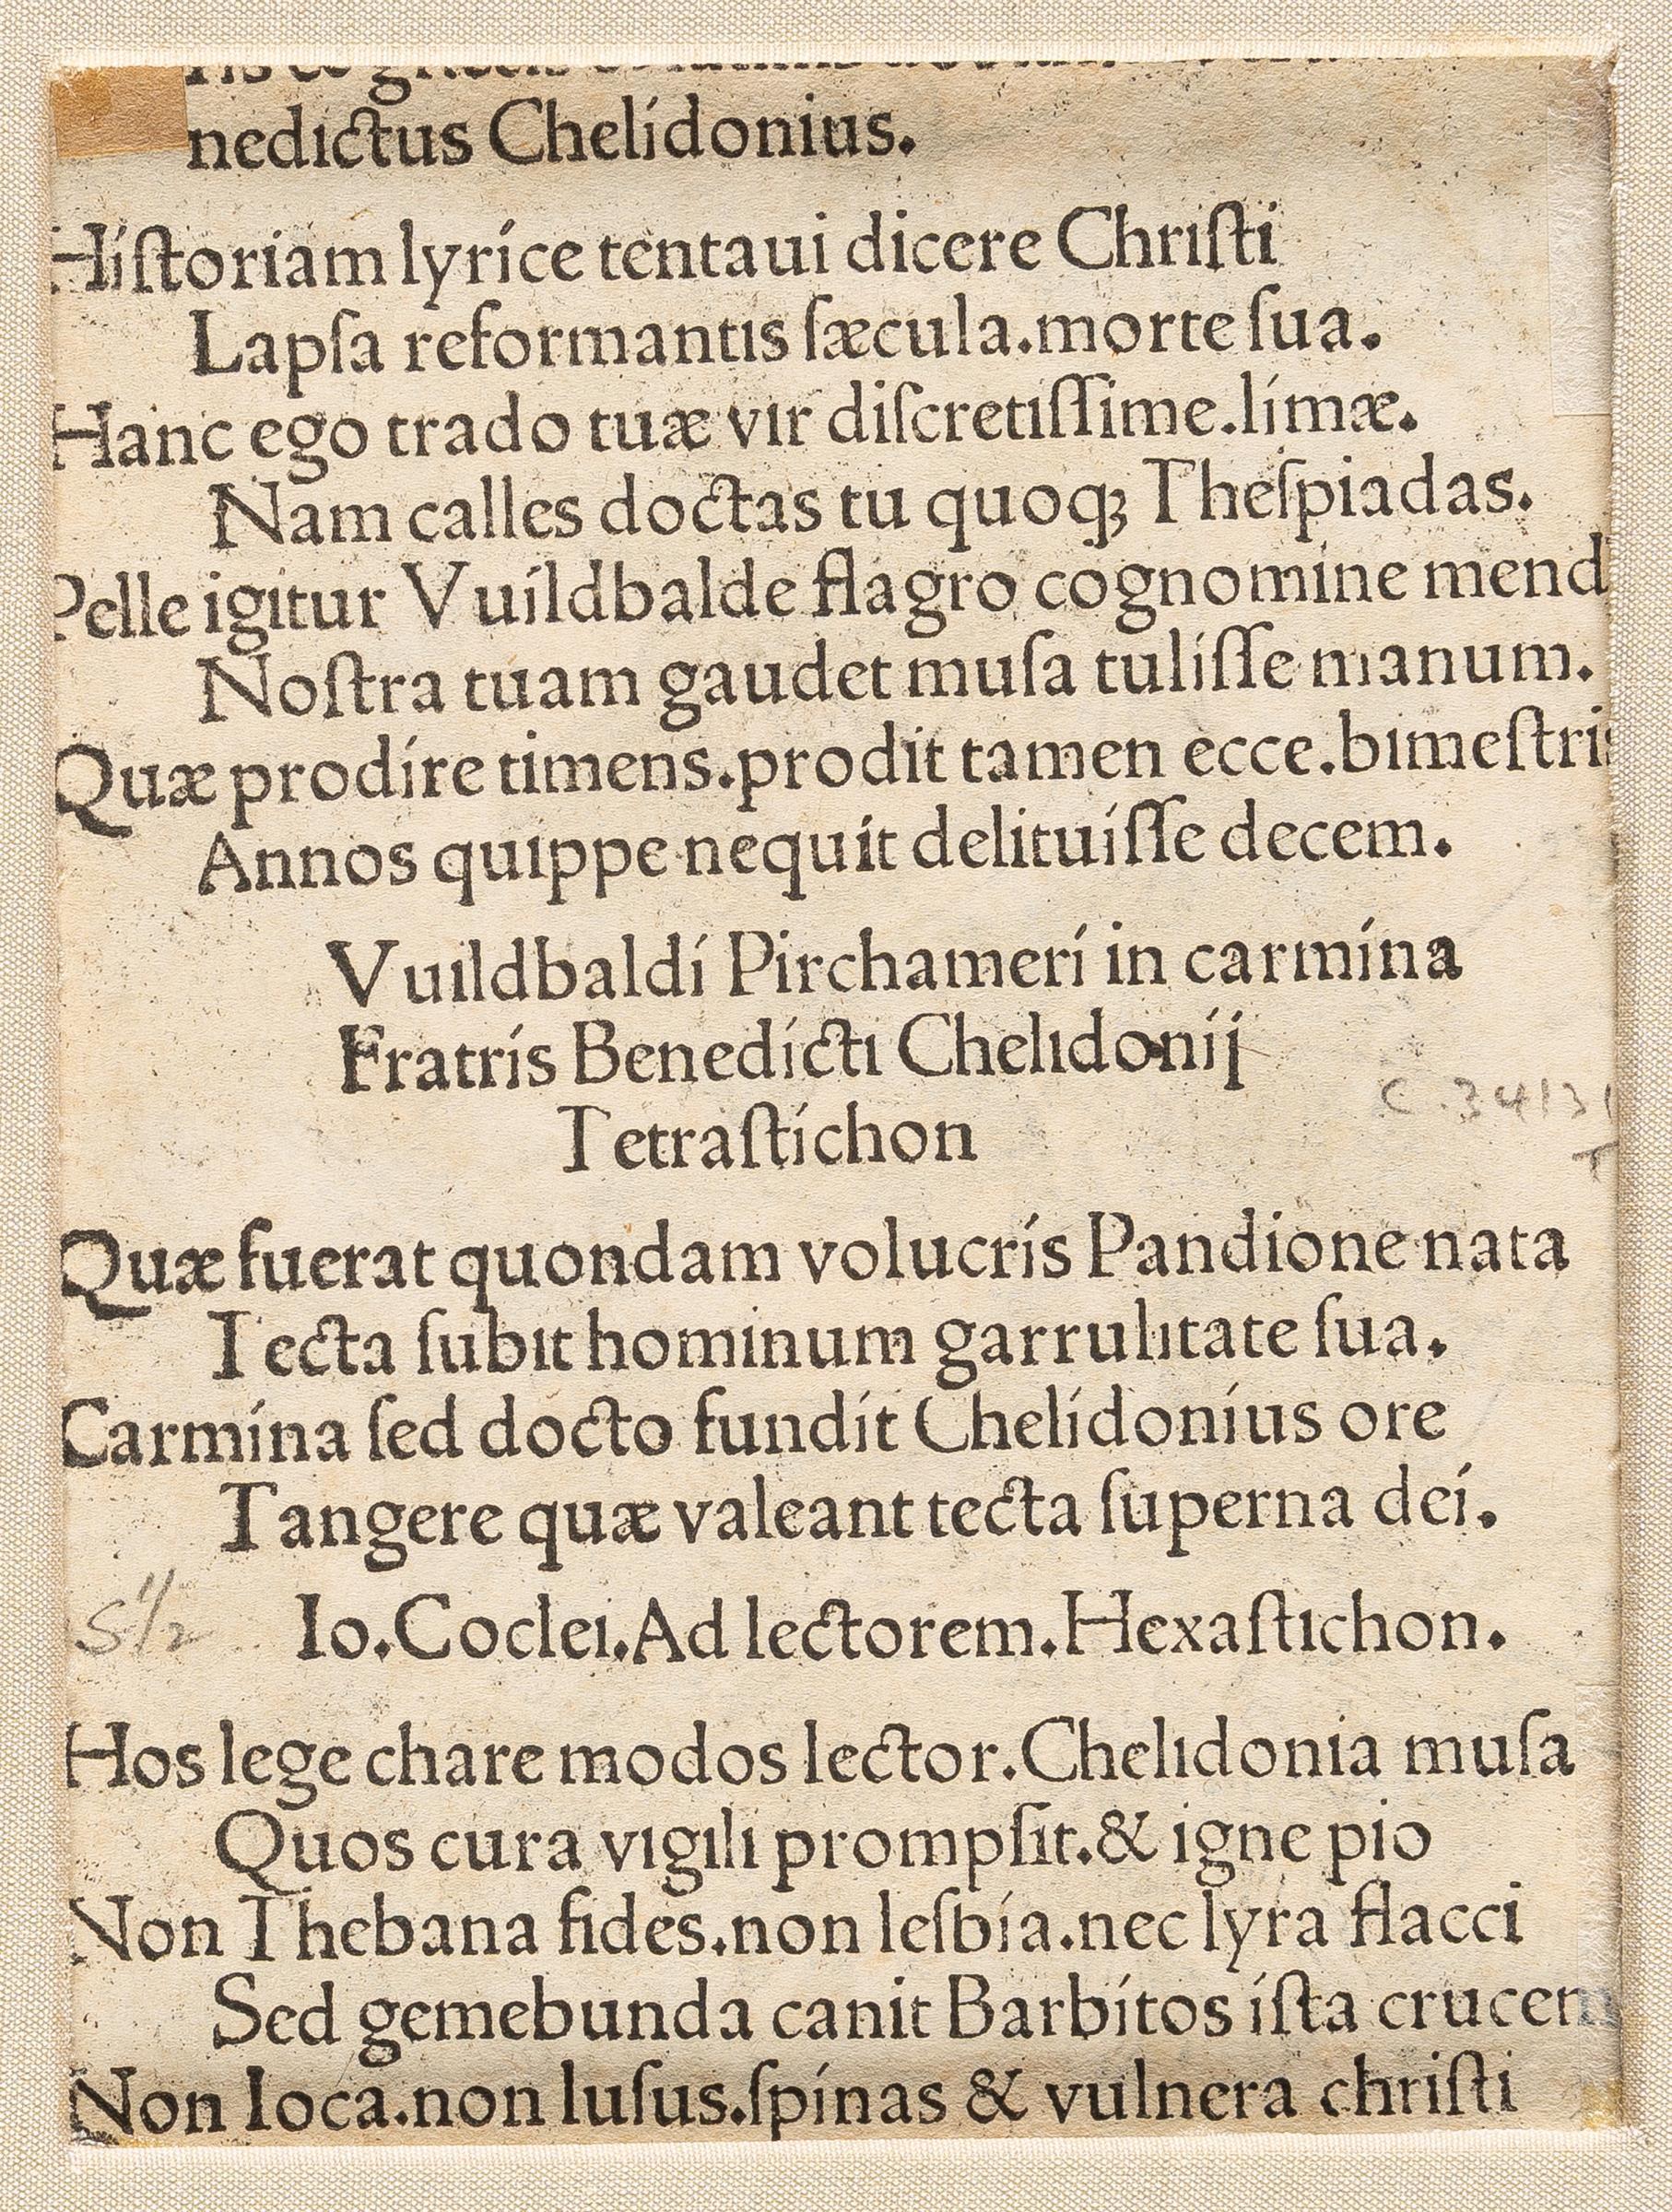 nedictus Chelidonius.
Hiſtoriam lyrice tentaui dicere Chriſti
Lapſa reformantis ſæcula.morte ſua.
Hanc ego trado tuæ vir diſcretiſſime.limæ.
Nam calles doctas tu quoqꝫ Theſpiadas.
Pelle igitur Vuildbalde flagro cognomine mend
Noſtra tuam gaudet muſa tuliſſe manum.
Quæ prodire timens.prodit tamen ecce.bimeſtris
Annos quippe nequit delituiſſe decem.
Vuildbaldi Pirchameri in carmina
Fratris Benedicti Chelidonij
Tetraſtichon
C.34131
Quæ fuerat quondam volucris Pandione nata
Tecta ſubit hominum garrulitate ſua.
Carmina ſed docto fundit Chelidonius ore
Tangere quæ valeant tecta ſuperna dei.
S 1/2
Io.Coclei.Ad lectorem.Hexaſtichon.
Hos lege chare modos lector.Chelidonia muſa
Quos cura vigili prompſit.& igne pio
Non Thebana fides.non leſbia.nec lyra flacci
Sed gemebunda canit Barbitos iſta crucem
Non Ioca.non luſus.ſpinas & vulnera chriſti